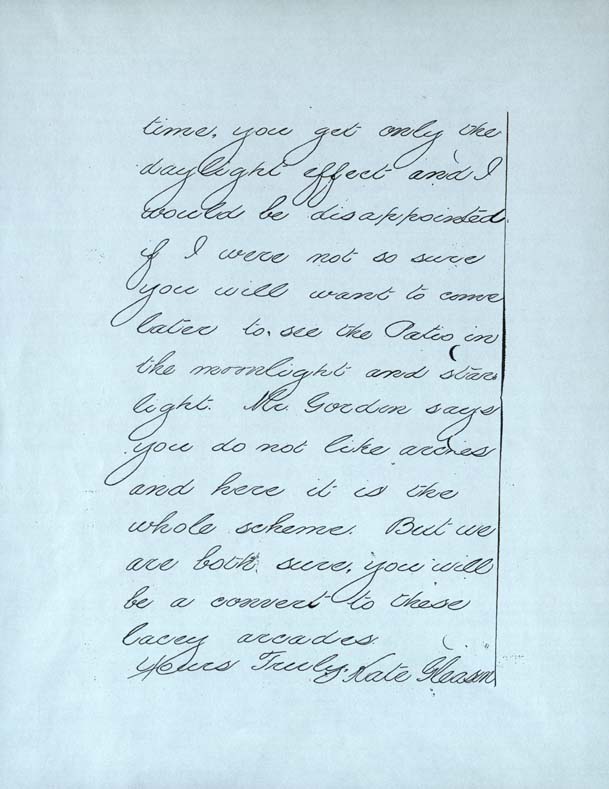 time, you get only the
daylight effect and I
would be disappointed
if I were not so sure
you will want to come
later to see the Patio in
the moonlight and star
light. Mr. Gordon says
you do not like arches
and here it is the
whole scheme. But we
are both sure, you will
be a convert to these
lacey arcades
Yours Truly. Kate Gleason